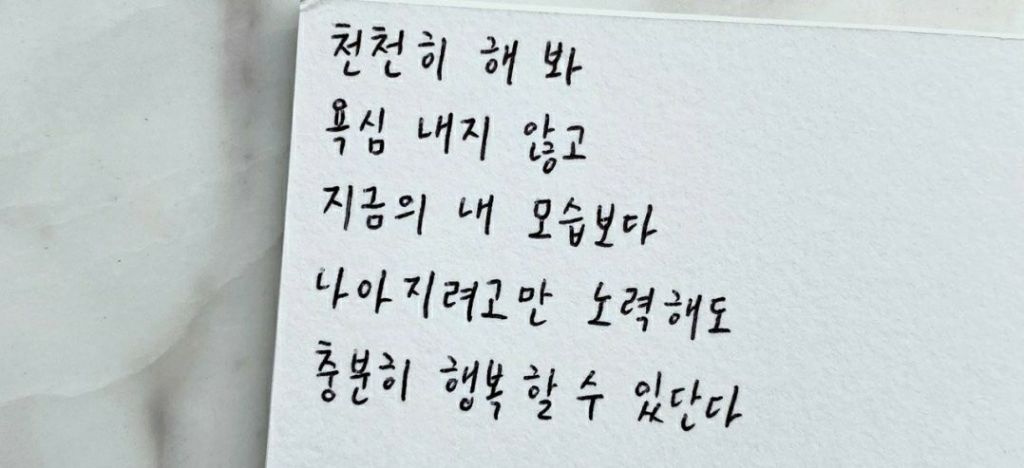 천천히 해 봐
욕심 내지 않고
지금의 내 모습보다
나아지려고만 노력해도
충분히 행복할 수 있단다